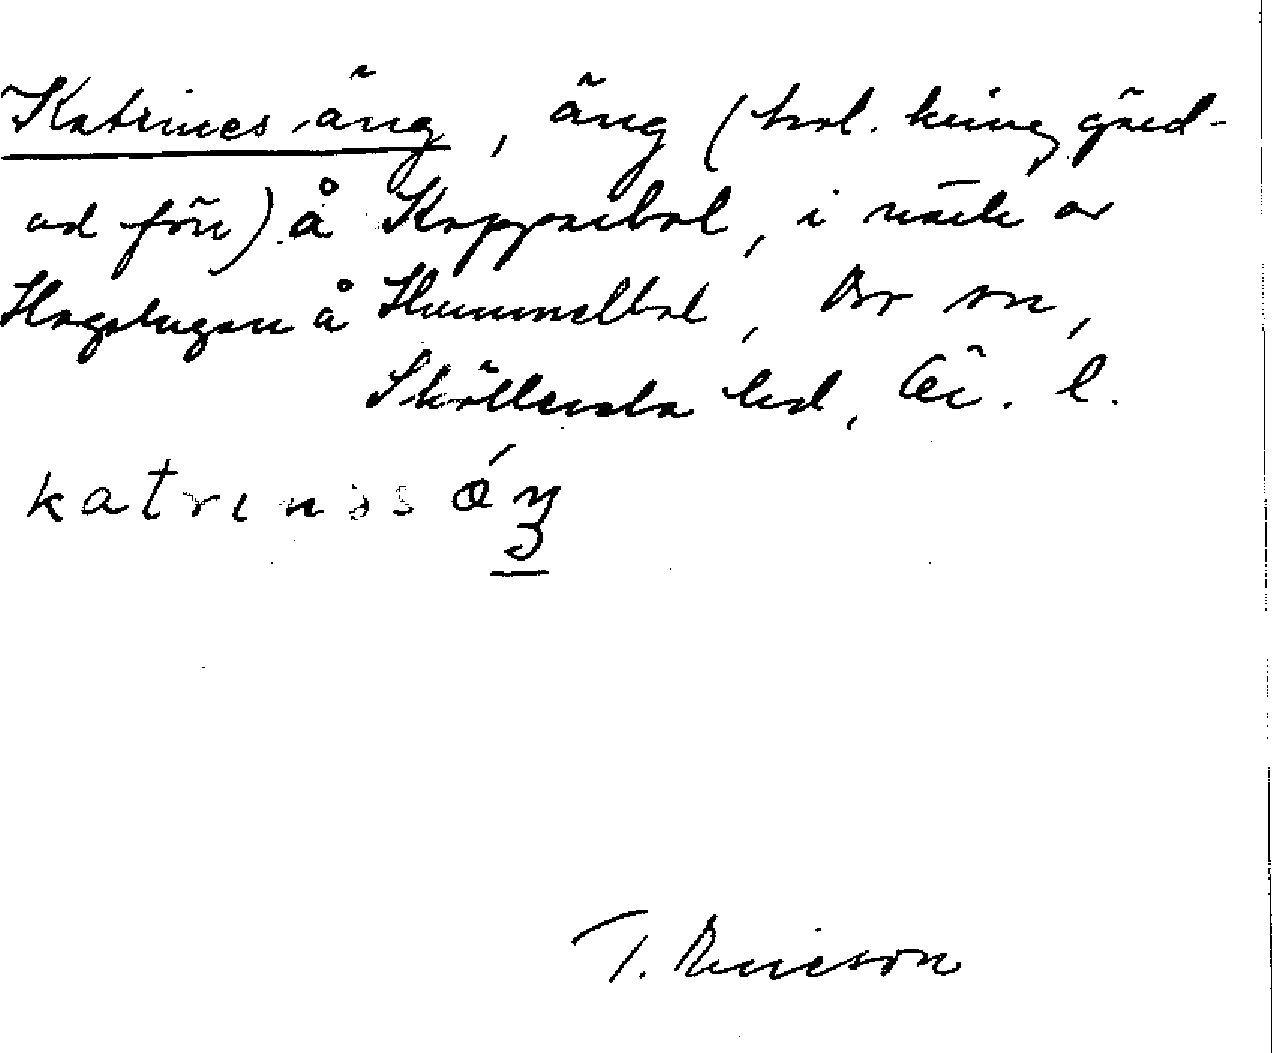 Katrines äng, äng (trol. kring gärd-
ad förr) å Kopparbol, i närh. av
Hagstugan å Hummelbol,
Sköllersta hd, Ör. l.
katrinəs ǽŋ
T. Ericson